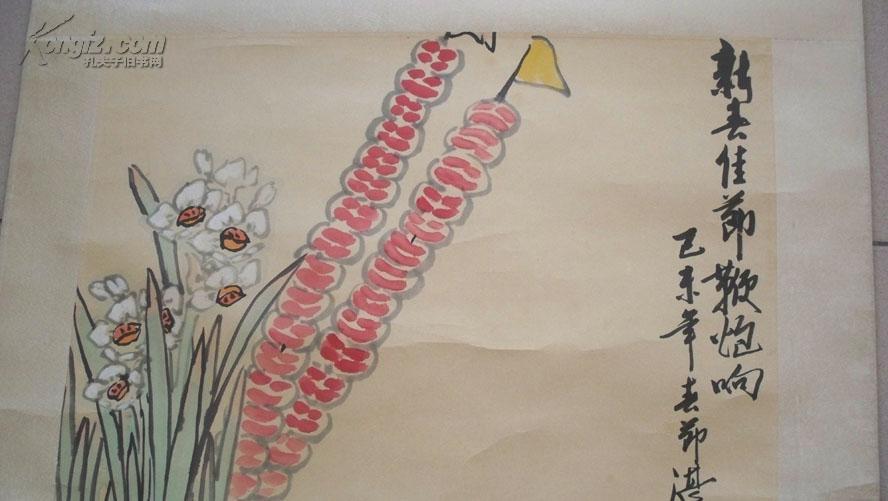 Kongfz.com
孔夫子旧书网
新春佳节鞭炮响
己未年春节湛